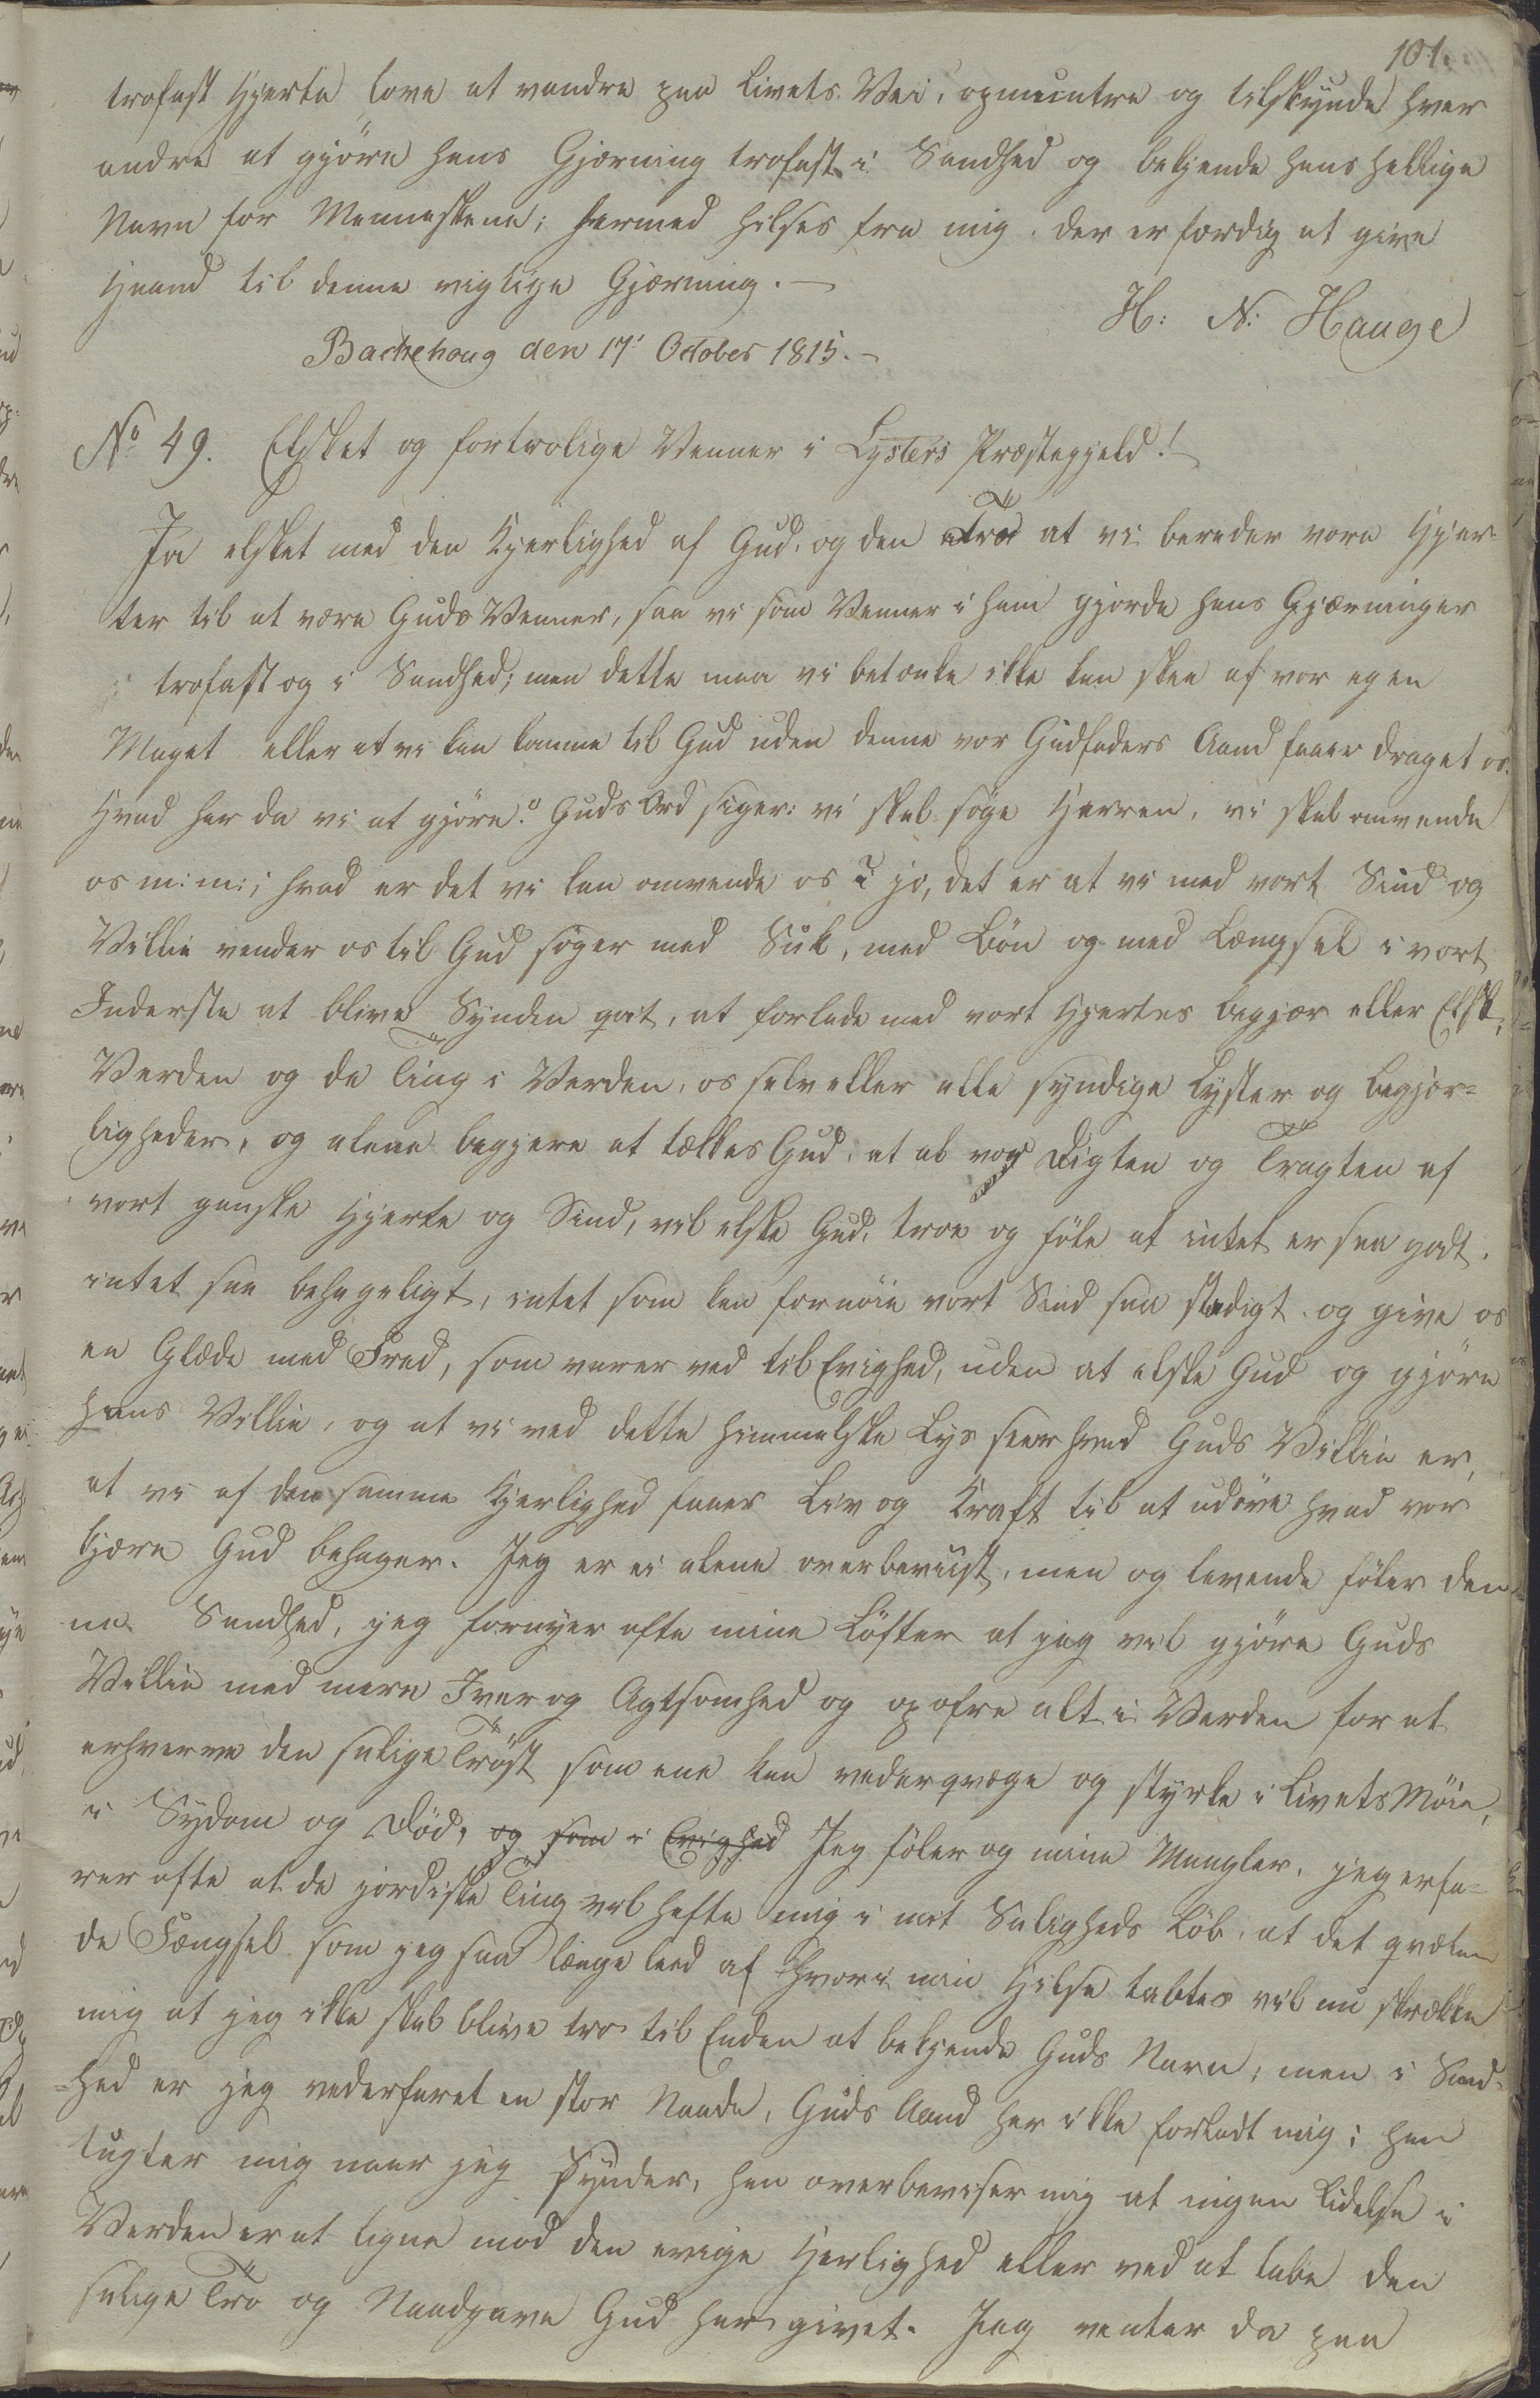 101.
trofast Hjerte love at vandre paa Livets Vei, opmuntre og tilskynde hver
andre at gjöre hans Gjerning trofast i Sandhed og bekjende hans hellige
Navn for Menneskene; hermed hilses fra mig. der er færdig at give
Haand til denne vigtige Gjærning. —
H: N: Hauge
Bachehoug den 17' October 1815. —
No 49. Elsket og fortrolige Venner i Lysters Præstegjeld! —
Ja elsket med den Kjerlighed af Gud, og den Tro at vi bereder vore Hjer
ter til at være Guds Venner, saa vi som Venner i ham gjorde hans Gjærninger
trofast og i Sandhed; men dette maa vi betænke ikke kan skee af vor egen
Magt eller at vi kan komme til Gud uden denne vor Gudfaders Aand faaer draget os.
Hvad har da vi at gjöre? Guds Ord siger: vi skal söge Herren, vi skal omvende
os m: m:; hvad er det vi kan omvende os? jo, det er at vi med vort Sind og
Villie vender os til Gud söger med Suk, med Bön og med Længsel i vort
Inderste at blive Synden qvit, at forlade med vort Hjertes Begjær eller Elsk,
Verden og de Ting i Verden, os selv eller alle syndige Lyster og begjær=
ligheder, og alene begjere at tækkes Gud, at al vor Digten og Tragten af
vort ganske Hjerte og Sind, vil elske Gud, troe og föle at intet er saa godt.
intet saa behageligt, intet som kan fornöie vort Sind saa stadigt og give os
en Glæde med Fred, som varer ved til Evighed, uden at elske Gud og gjöre
hans Villie, og at vi ved dette himmelske Lys seer hvad Guds Villie er,
at vi af den samme Kjerlighed faaer Liv og Kraft til at udöve hvad vor
kjære Gud behager. Jeg er ei alene overbeviist, men og levende föler den=
ne Sandhed, jeg fornyer ofte mine Löfter at jeg vil gjöre Guds
Villie med mere Iver og Agtsomhed og opofre alt i Verden for at
erhverve den salige Tröst som ene kan vederqvæge og styrke i Livets Möie,
i Sydom og Död, og som i Evighed Jeg föler og mine Mangler, jeg erfa=
rer ofte at de jordiske Ting vil hefte mig i mit Saligheds Löb, at det qvælen
de Fængsel som jeg saa længe leed af hvori min Helse tabtes vil nu skrække
mig at jeg ikke skal blive tro til Enden at bekjende Guds Navn; men i Sand=
=hed er jeg vederfaret en stor Naade, Guds Aand har ikke forladt mig; han
tugter mig naar jeg Synder, han overbeviser mig at ingen Lidelse i
Verden er at ligne mod den evige Herlighed eller ved at tabe den
salige Tro og Naadgave Gud har givet. Jeg venter da paa